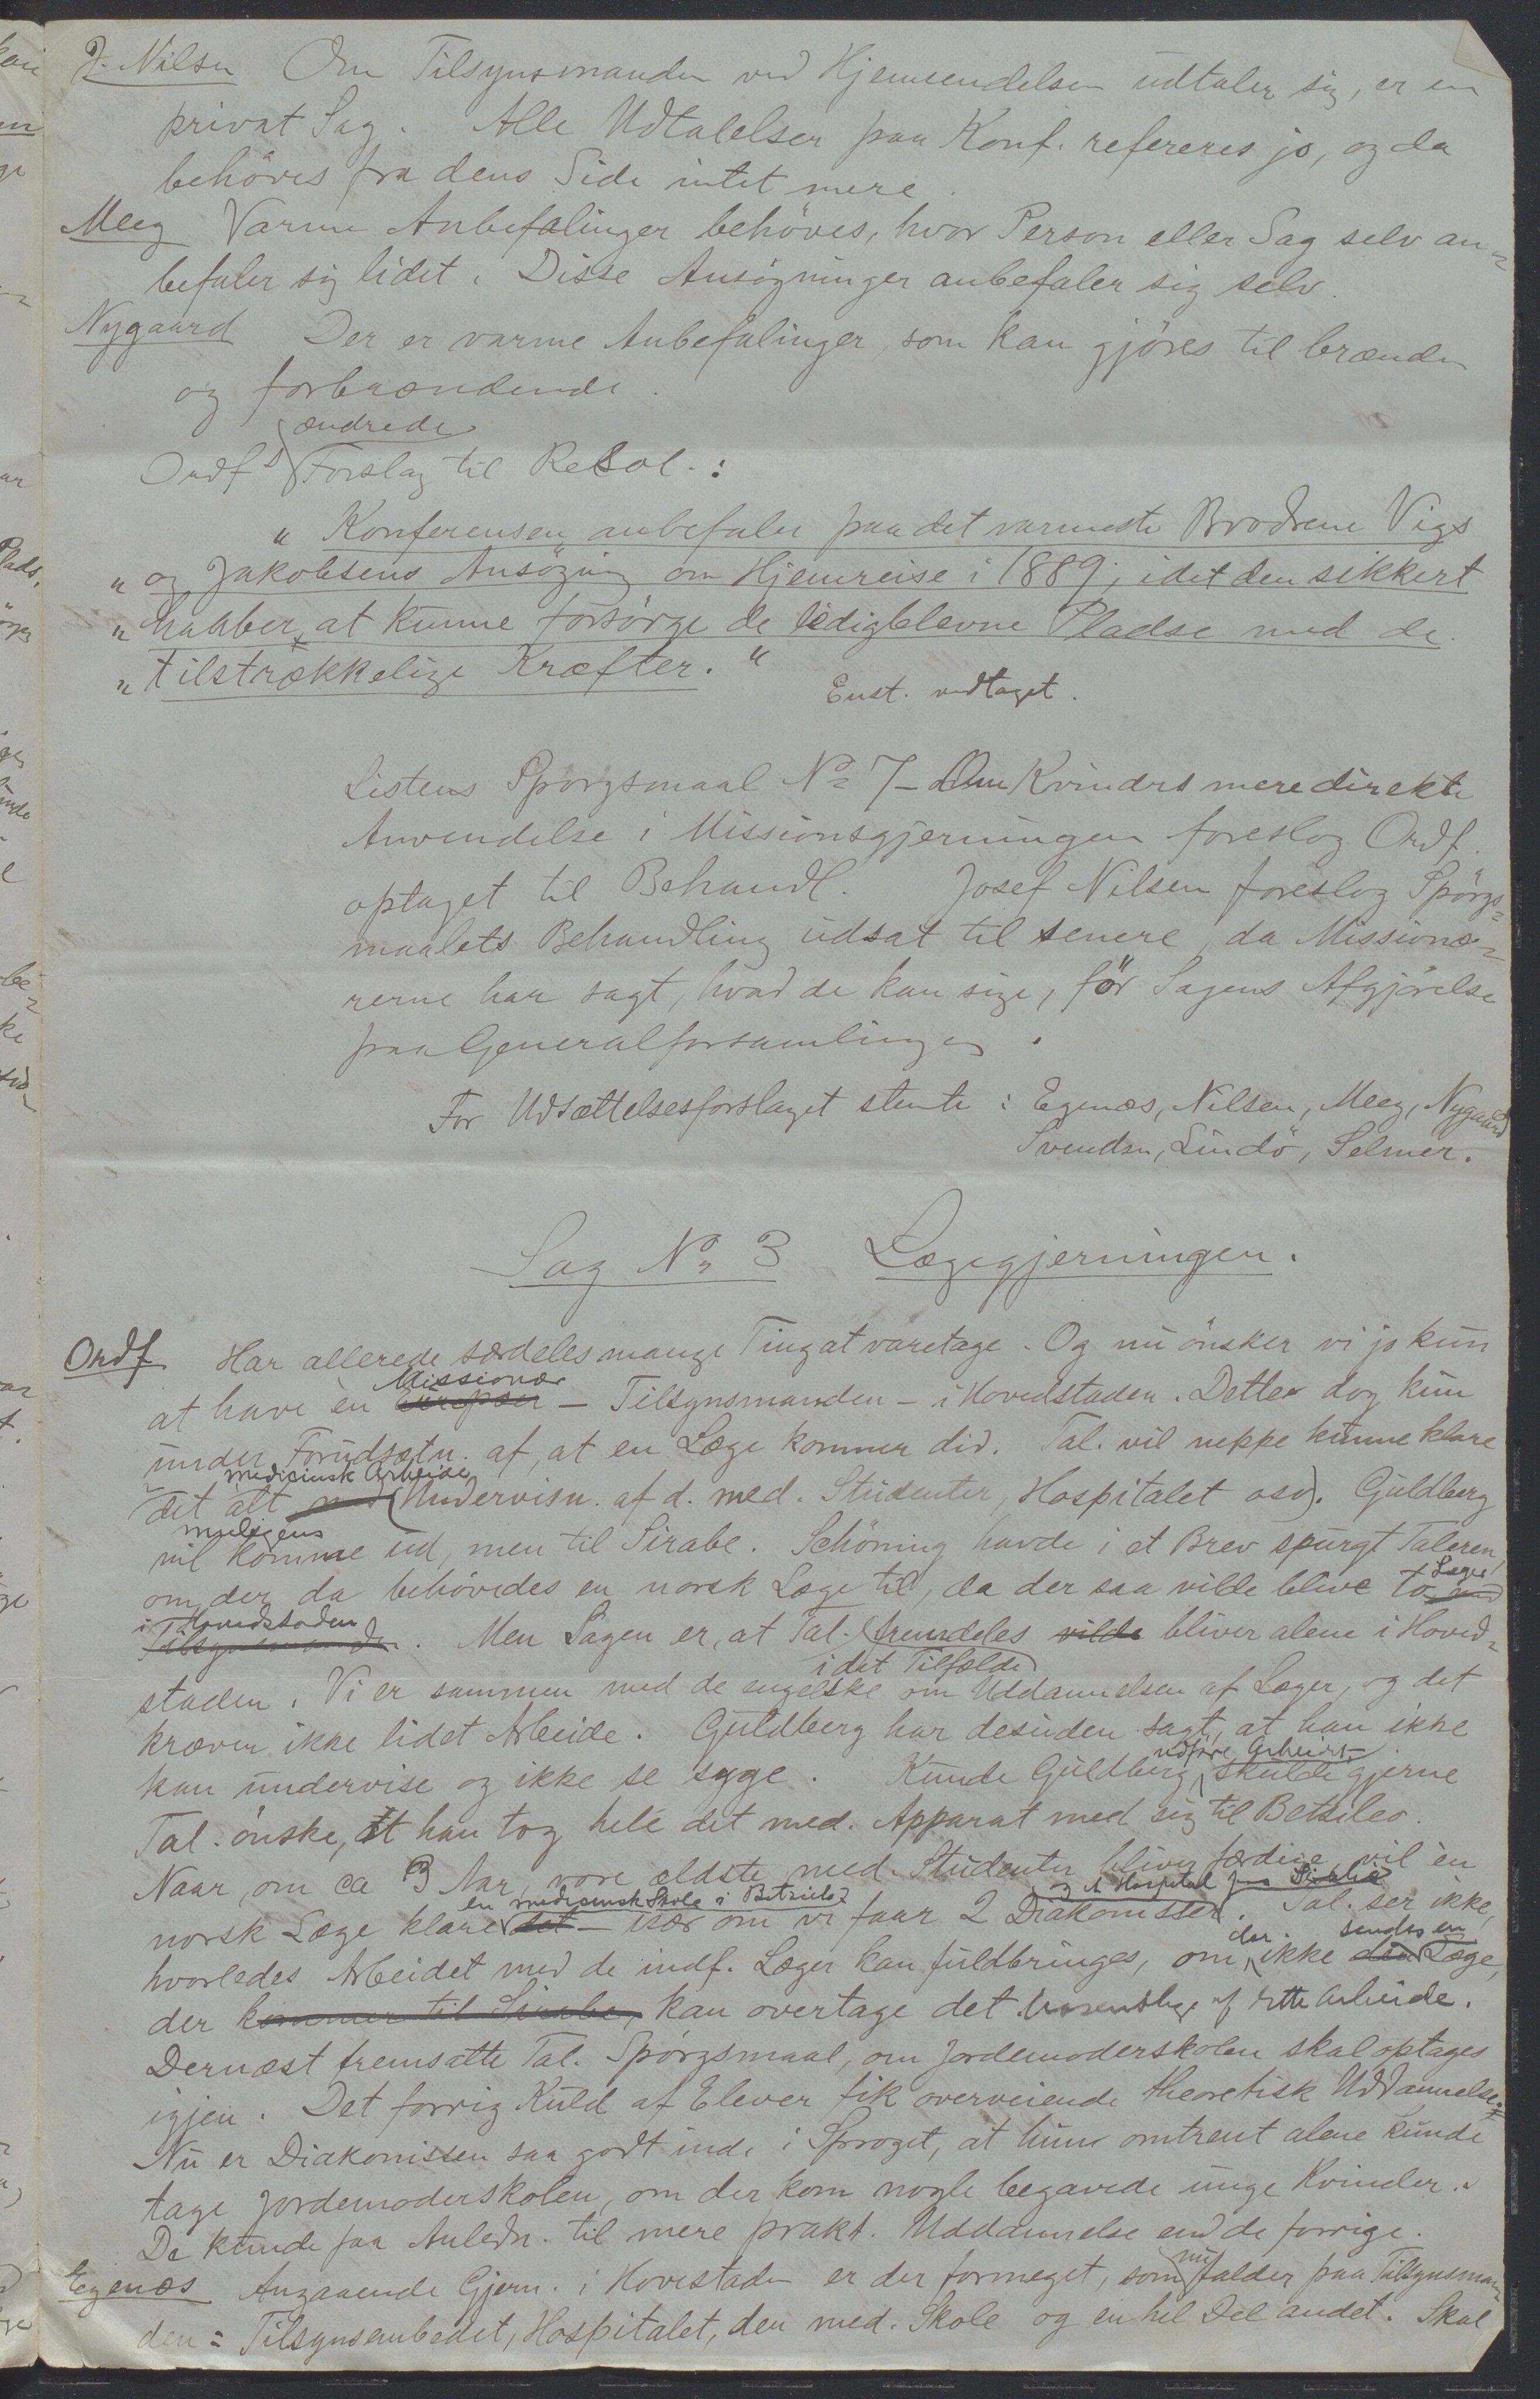 J. Nilsen Om Tilsynsmanden ved Hjemsendelsen udtaler sig, er en
privat Sag. Alle Udtalelser paa Konf. refereres jo, og da
behöves fra dens Side intet mere.
Meeg Varme Anbefalinger behöves, hvor Person eller Sag selv an-
befaler sig lidet. Disse Ansögninger anbefaler sig selv.
Nygaard Der er varme Anbefalinger, som kan gjöres til brænden
og forbrændende.
ændrede
Ordfs Forslag til Resol.:
" Konferensen anbefaler paa det varmeste Brödrene Vigs
" og Jakobsens Ansögning om Hjemreise i 1889, idet den sikkert
" haaber at kunne forsörge de ledigblevne Pladse med de
" tilstrækkelige Kræfter. "
Enst. vedtaget.
Listens Spörgsmaal No 7 - Om Kvinders mere direkte
Anvendelse i Missionsgjerningen foreslog Ordf.
optaget til Behandl. Josef Nilsen foreslog Spörgs-
maalets Behandling udsat til senere, da Missionæ-
rerne har sagt, hvad de kan sige, för Sagens Afgjörelse
paa Generalforsamlingen.
For Udsættelsesforslaget stemte: Egenæs, Nilsen, Meeg, Nygaard
Svendsen, Lindö, Selmer.
Sag No 3 Lægegjerningen.
Ordf Har allerede særdeles mange Ting at varetage. Og nu önsker vi jo kun
Missionær
at have en - Tilsynsmanden - i Hovedstaden. Dette dog kun
under Forudsætn. af, at en Læge kommer did. Tal. vil neppe kunne klare
medicinsk Arbeide
det alt (Undervisn. af d. med. Studenter, Hospitalet osv). Guldberg
muligens
vil komme ud, men til Sirabe. Schöning havde i et Brev spurgt Taleren,
Læger
om der da behövedes en norsk Læge til, da der saa vilde blive to
i Hovedstaden
Tilsynsmanden. Men Sagen er, at Tal. fremdeles vilde bliver alene i Hoved-
i det Tilfælde
staden. Vi er sammen med de engelske om Uddannelsen af Læger, og det
kræver ikke lidet Arbeide. Guldberg har desuden sagt, at han ikke
udföre Arbeidet
kan undervise og ikke se syge. Kunde Guldberg skulde gjerne
Tal. önske, at han tog hele det med. Apparat med sig til Betsileo.
Naar, om ca 3 Aar, vore ældste med. Studenter bliver færdige, vil èn
en medicinsk Skole i Betsileo og et Hospital paa Sirabe
norsk Læge klare det - især om vi faar 2 Diakonisser. Tal. ser ikke,
der sendes en
hvorledes Arbeidet med de indf. Læger kan fuldbringes, om ikke den Læge,
der kommer til Sirabe, kan overtage det væsentlige af dette Arbeide.
Dernæst fremsatte Tal. Spörgsmaal, om Jordemoderskolen skal optages
igjen. Det forrig Kuld af Elever fik overveiende theoretisk Uddannelse.
Nu er Diakonissen saa godt inde i Sproget, at hun omtrent alene kunde
tage Jordemoderskolen, om der kom nogle begavede unge Kvinder.
De kunde faa Anledn. til mere prakt. Uddannelse end de forrige.
nu
Egenæs Angaaende Gjern. i Hovestaden er der formeget, som falder paa Tilsynsman-
den: Tilsynsembedet, Hospitalet, den med. Skole og en hel Del andet. Skal